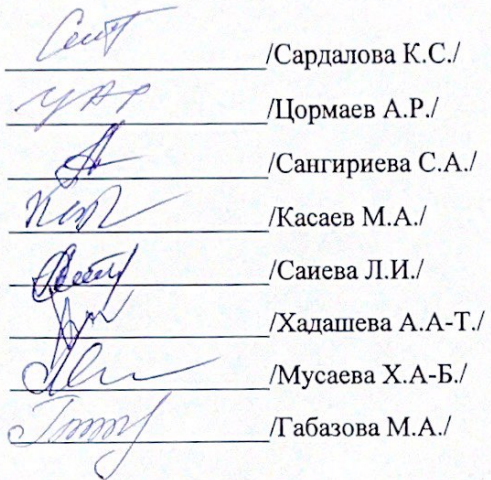 /Сардалова К.С./
/Цормаев А.Р./
/Сангириева С.А./
/Касаев М.А./
/Саиева Л.И./
/Хадашева А.А-Т./
/Мусаева Х.А-Б./
/Габазова М.А./